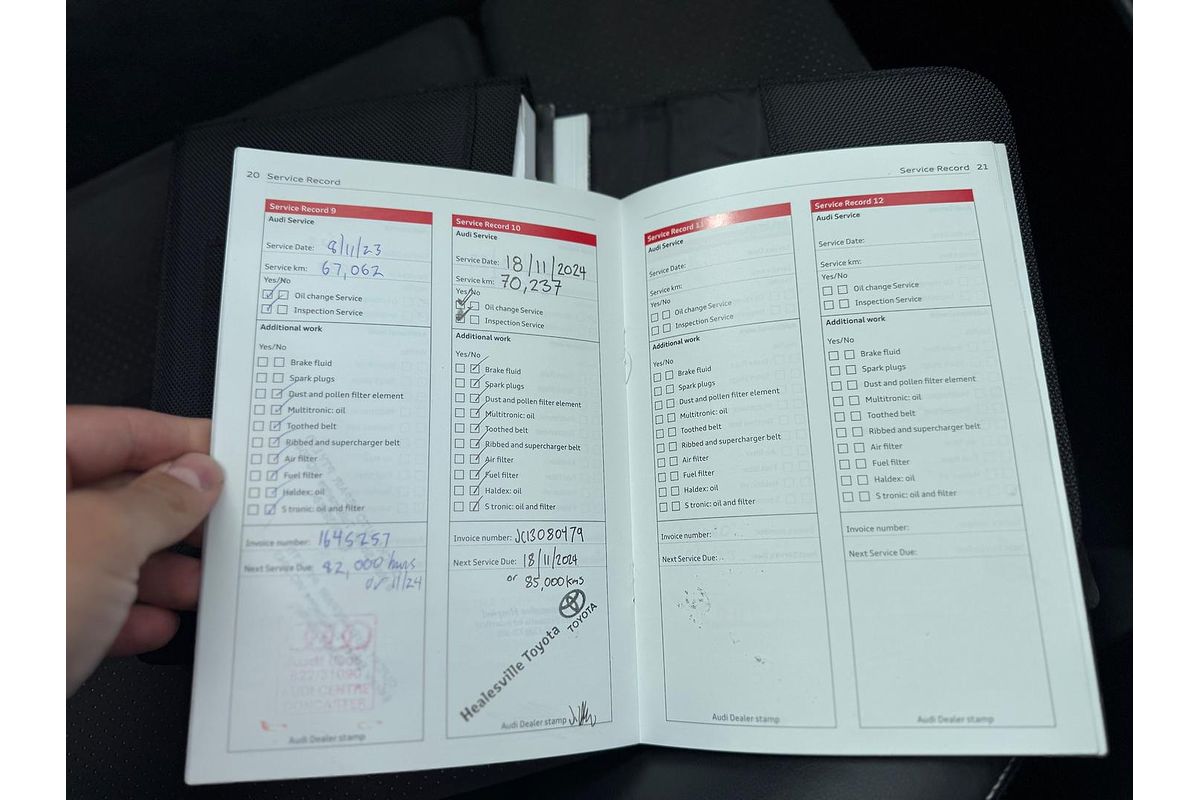 20 Service Record
Service Record 9
Audi Service
Service Date: 8/11/23
Service km: 67,062
Yes/No
Oil change Service
Inspection Service
Additional work
Yes/No
Brake fluid
Spark plugs
Dust and pollen filter element
Multitronic: oil
Toothed belt
Ribbed and supercharger belt
Air filter
Fuel filter
Haldex: oil
S tronic: oil and filter
Invoice number: 1645257
Next Service Due: 82,000 kms
or 11/24
AUDI CENTRE
DONCASTER
Audi Dealer stamp
Service Record 10
Audi Service
Service Date: 18/11/2024
Service km: 70,237
Yes/No
Oil change Service
Inspection Service
Additional work
Yes/No
Brake fluid
Spark plugs
Dust and pollen filter element
Multitronic: oil
Toothed belt
Ribbed and supercharger belt
Air filter
Fuel filter
Haldex: oil
S tronic: oil and filter
Invoice number: JC13080479
Next Service Due: 18/11/2024
or 85,000 kms
Healesville Toyota
TOYOTA
Audi Dealer stamp
Service Record 21
Service Record 11
Audi Service
Service Date:
Service km:
Yes/No
Oil change Service
Inspection Service
Additional work
Yes/No
Brake fluid
Spark plugs
Dust and pollen filter element
Multitronic: oil
Toothed belt
Ribbed and supercharger belt
Air filter
Fuel filter
Haldex: oil
S tronic: oil and filter
Invoice number:
Next Service Due:
Audi Dealer stamp
Service Record 12
Audi Service
Service Date:
Service km:
Yes/No
Oil change Service
Inspection Service
Additional work
Yes/No
Brake fluid
Spark plugs
Dust and pollen filter element
Multitronic: oil
Toothed belt
Ribbed and supercharger belt
Air filter
Fuel filter
Haldex: oil
S tronic: oil and filter
Invoice number:
Next Service Due:
Audi Dealer stamp